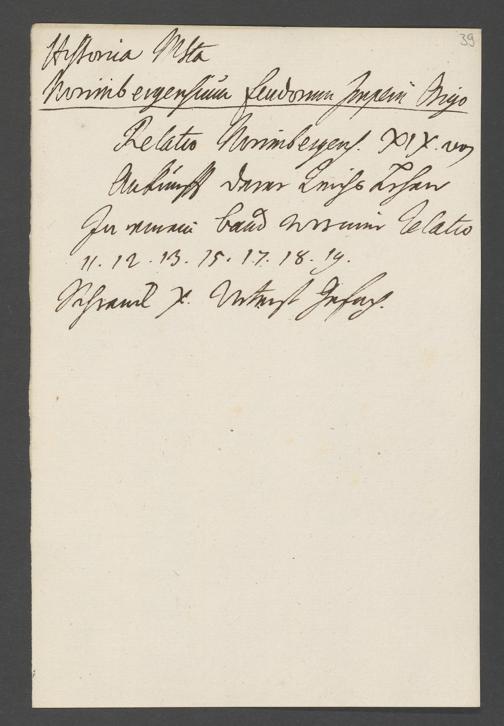 39
Historia Msta
Norimbergensium feudorum Imperii Origo
Relatio Norimbergens. XIX. von
Ankunfft derer Reichs Lehen
In einem band worinn Relatio
11. 12. 13. 15. 17. 18. 19.
Schranck X. Unterst Gefach.